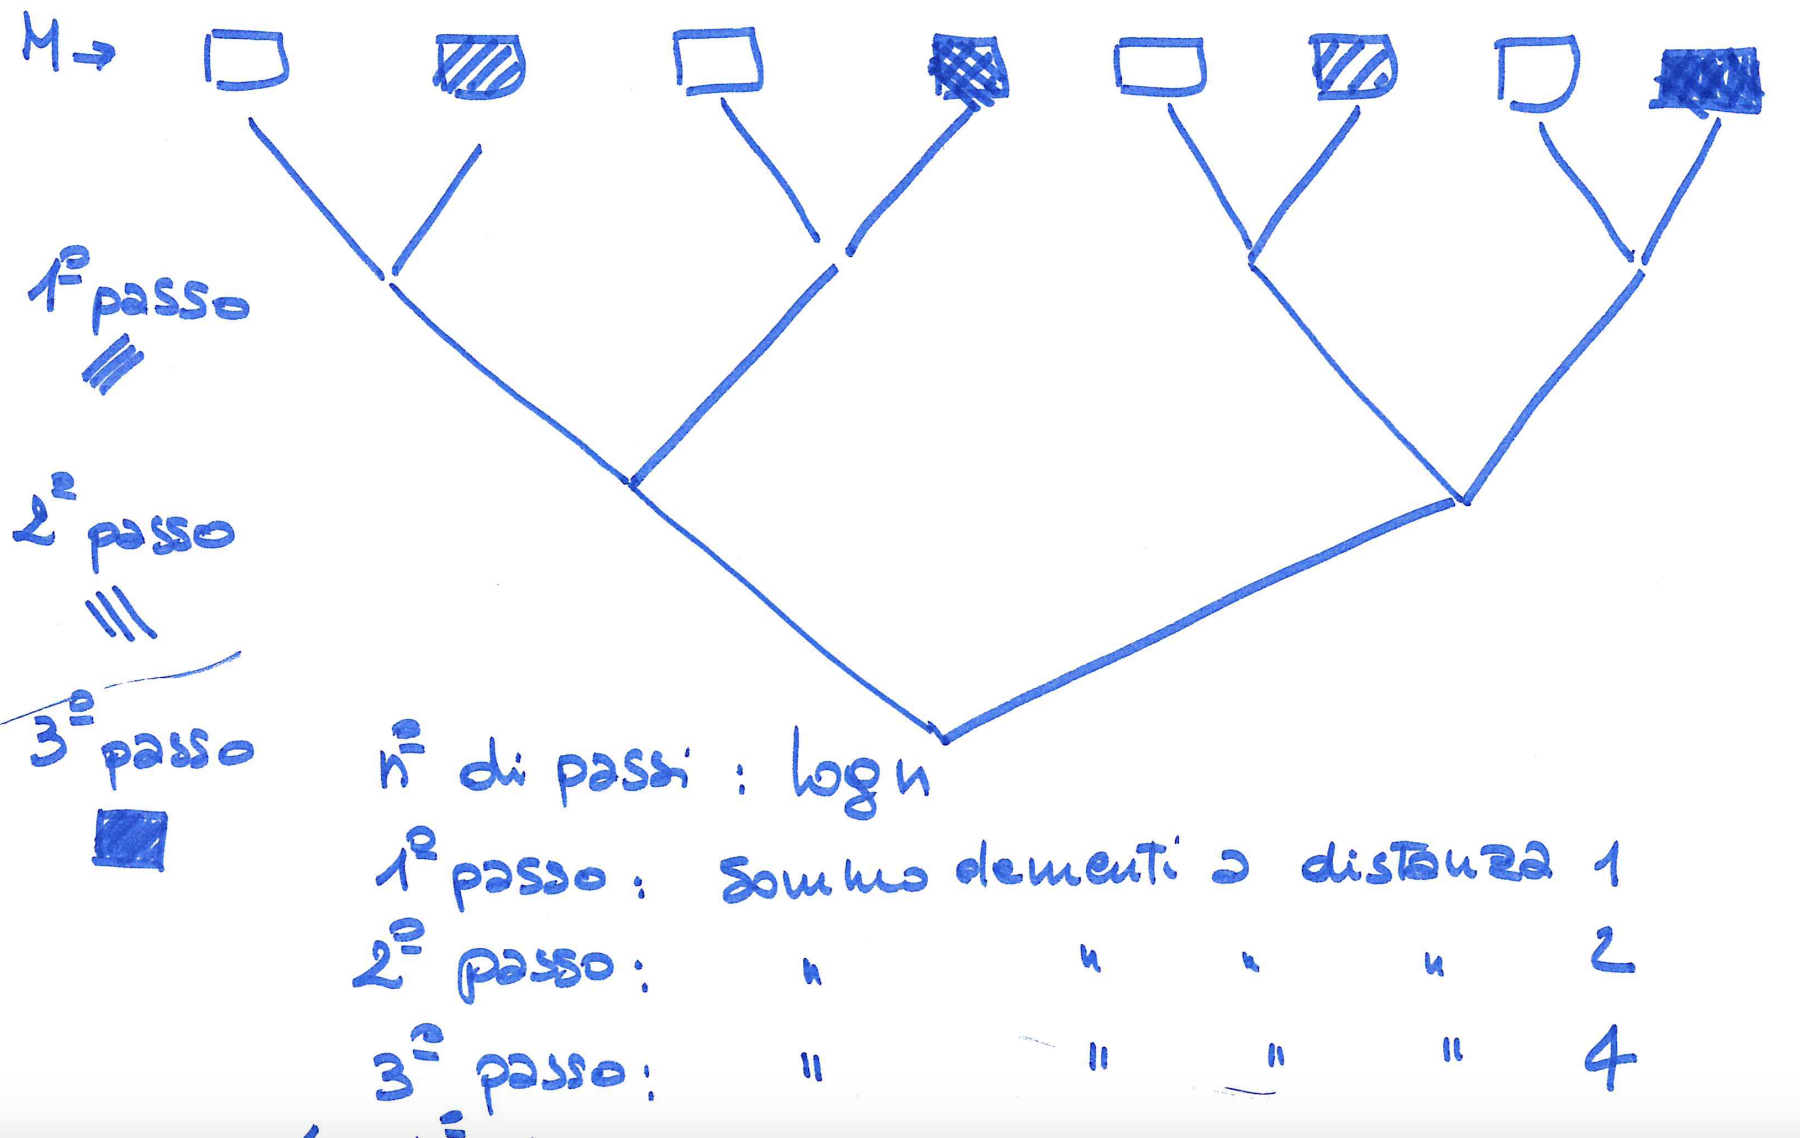 M →
1º passo
2º passo
3º passo
nº di passi : log n
1º passo : sommo elementi a distanza 1
2º passo : " " " " 2
3º passo : " " " " 4